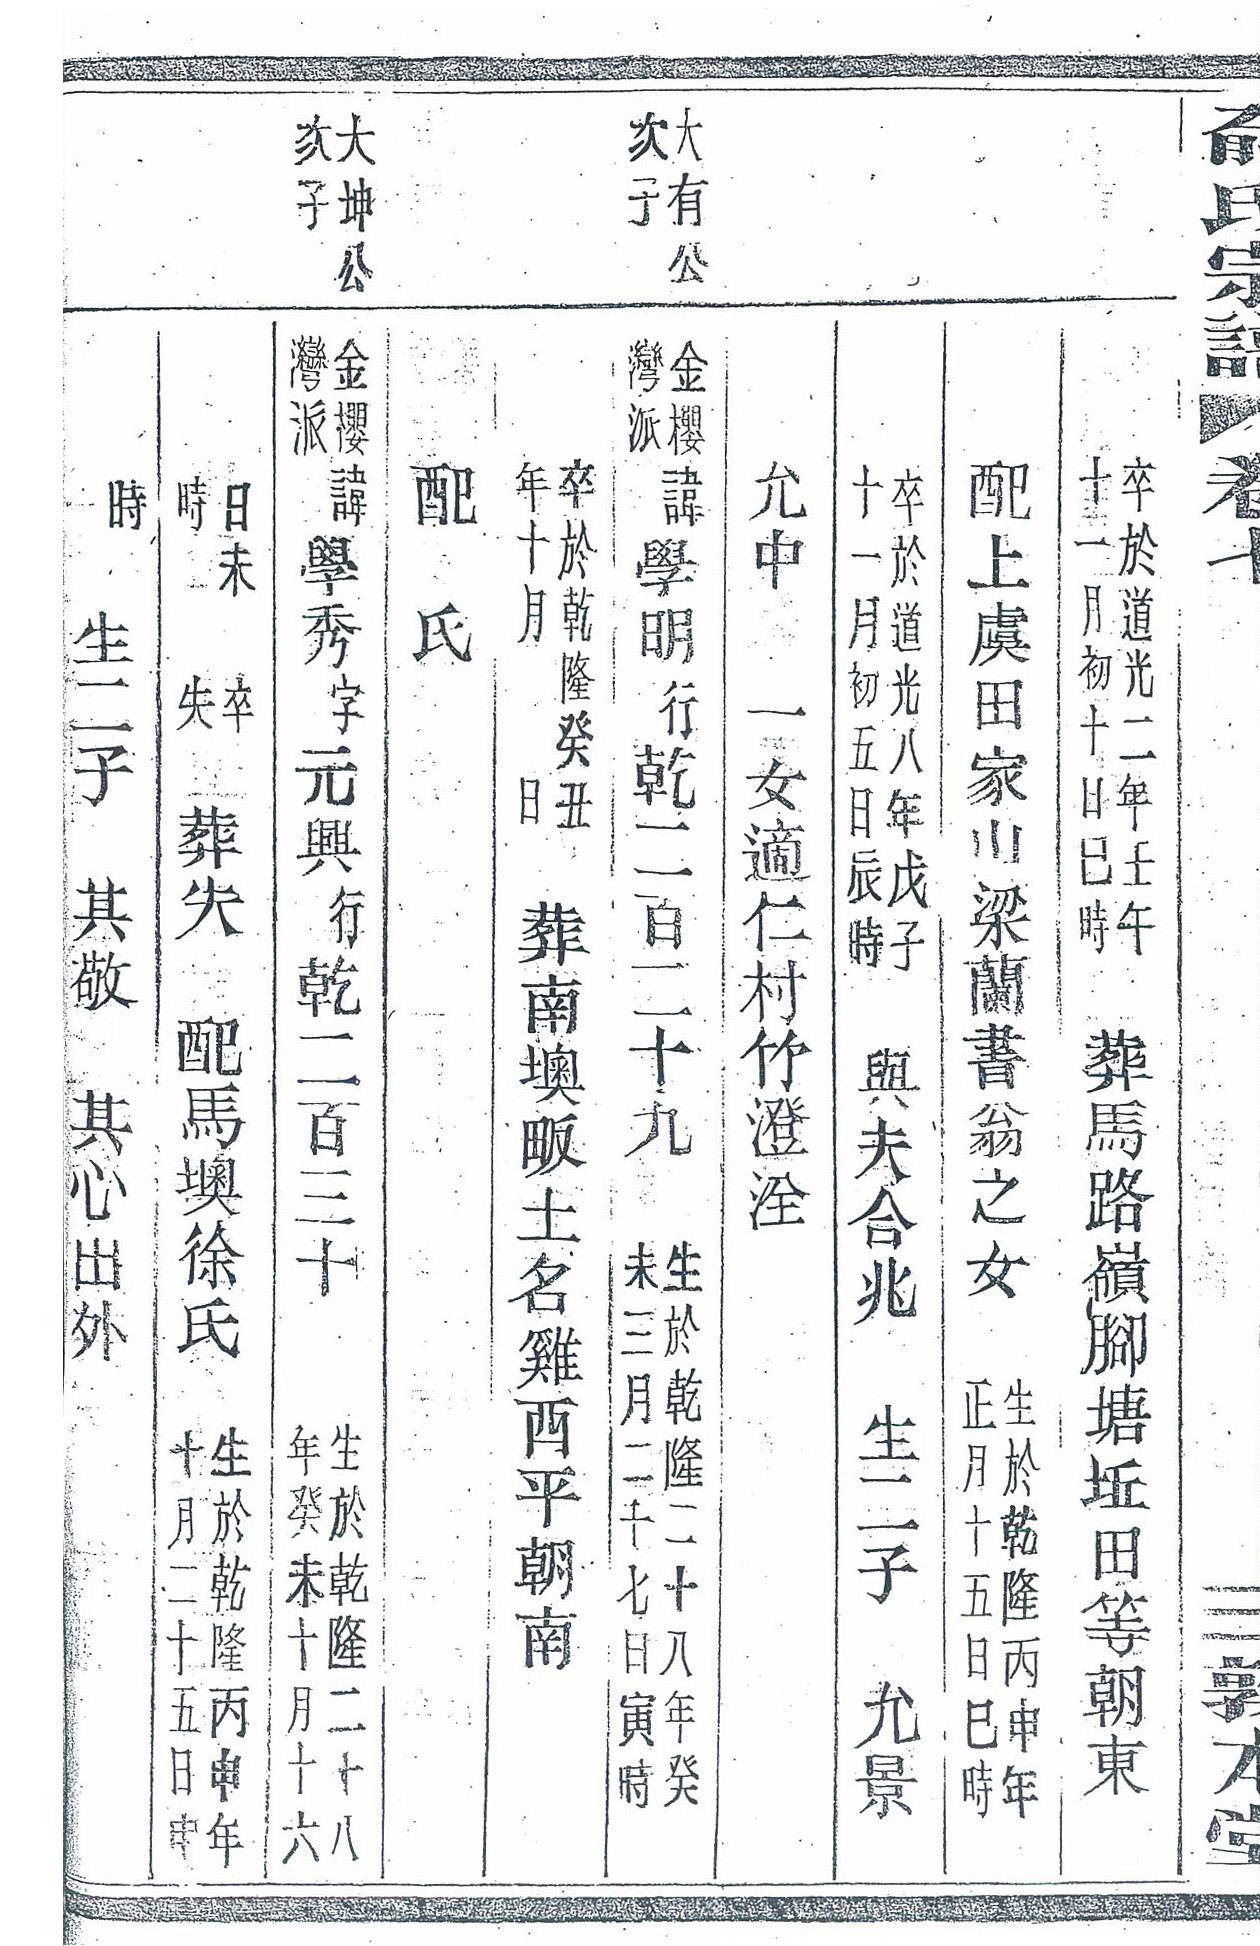 俞氏宗譜 卷七 敦本堂
卒於道光二年壬午
十二月初十日巳時
葬馬路嶺腳塘坵田等朝東
配上虞田家山梁蘭書翁之女
生於乾隆丙申年
正月十五日巳時
卒於道光八年戊子
十一月初五日辰時
與夫合兆 生二子 允景
允中 一女適仁村竹澄洤
大有公
次子
金櫻
灣派
諱學明行乾二百二十九
生於乾隆二十八年癸
未三月二十七日寅時
卒於乾隆癸丑
年十月 日
葬南墺畈土名雞西平朝南
配 氏
大坤公
次子
金櫻
灣派
諱學秀字元興行乾二百三十
生於乾隆二十八
年癸未十月十六
日未
時
卒
失
葬失 配馬墺徐氏
生於乾隆丙申年
十月二十五日
時 生二子 其敬 其心出外